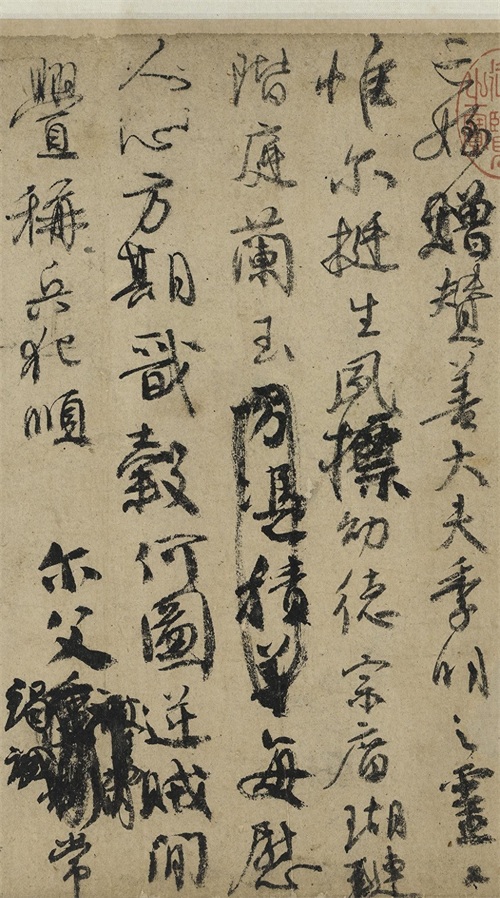 亡姪贈賛善大夫季明之靈曰
惟尔挺生夙標幼德宗庿瑚璉
階庭蘭玉方憑積善每慰
人心方期戩穀何圖逆賊閒
釁稱兵犯順尔父竭誠常